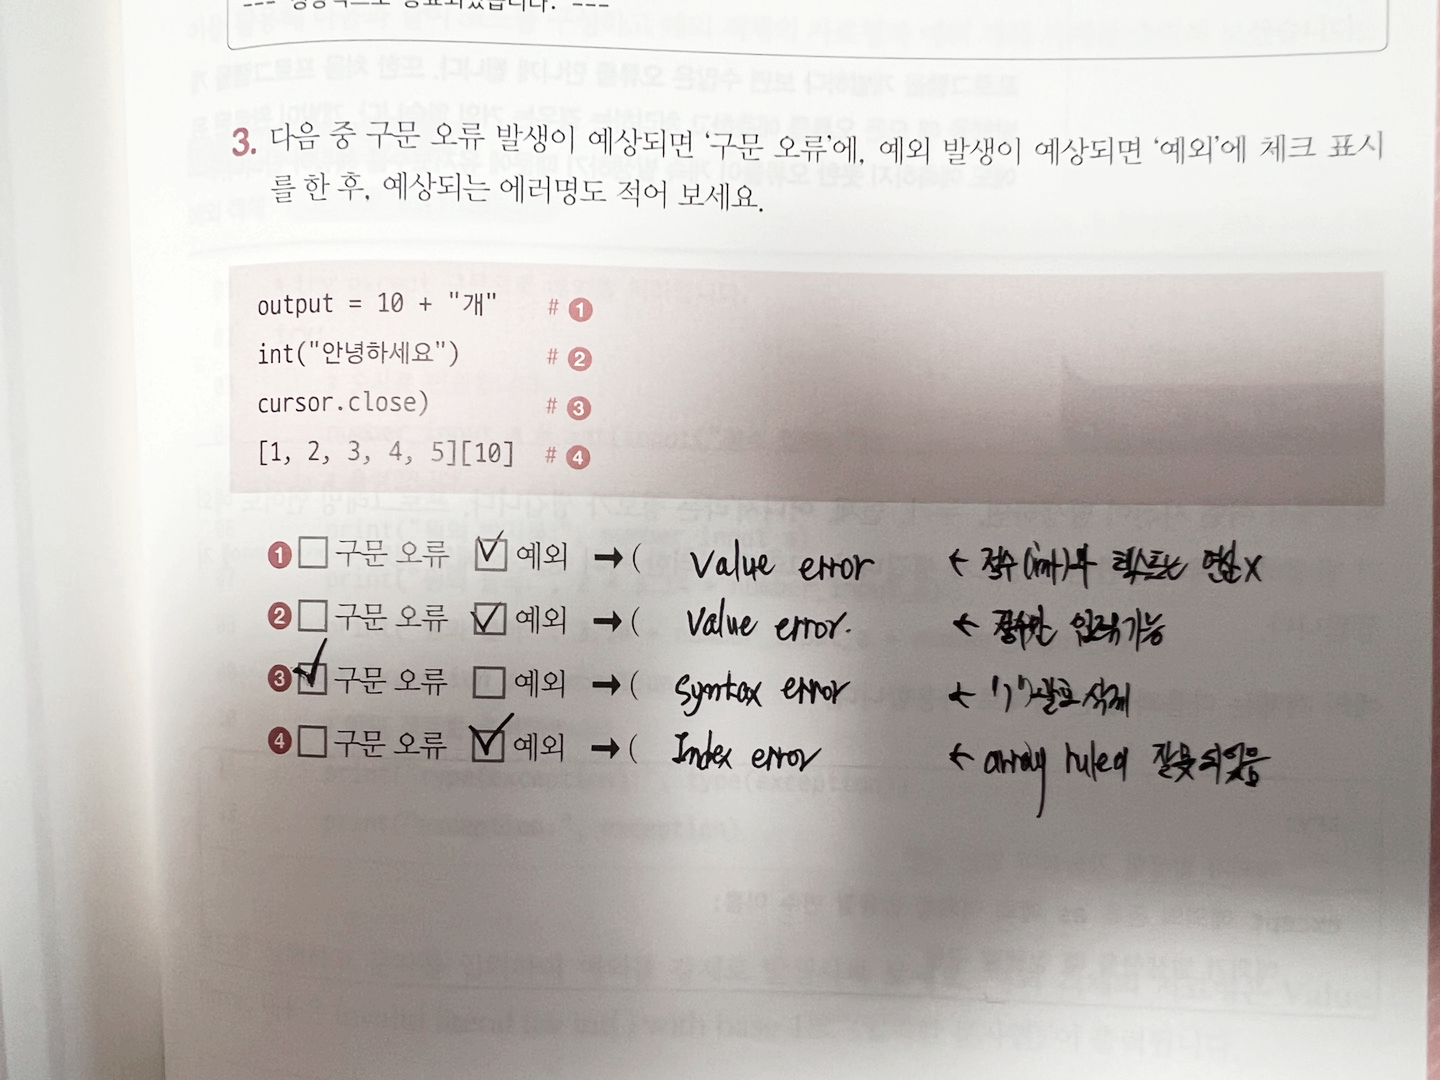 --- 정상적으로 종료되었습니다. ---
3. 다음 중 구문 오류 발생이 예상되면 ‘구문 오류’에, 예외 발생이 예상되면 ‘예외’에 체크 표시
를 한 후, 예상되는 에러명도 적어 보세요.
output = 10 + "개" # ❶
int("안녕하세요") # ❷
cursor.close) # ❸
[1, 2, 3, 4, 5][10] # ❹
❶ □ 구문 오류 ☑ 예외 → ( Value error ← 정수(int)와 텍스트는 연산 X
❷ □ 구문 오류 ☑ 예외 → ( Value error. ← 정수만 입력가능
❸ ☑ 구문 오류 □ 예외 → ( Syntax error ← ')' 괄호 삭제
❹ □ 구문 오류 ☑ 예외 → ( Index error ← array 잘못되었음